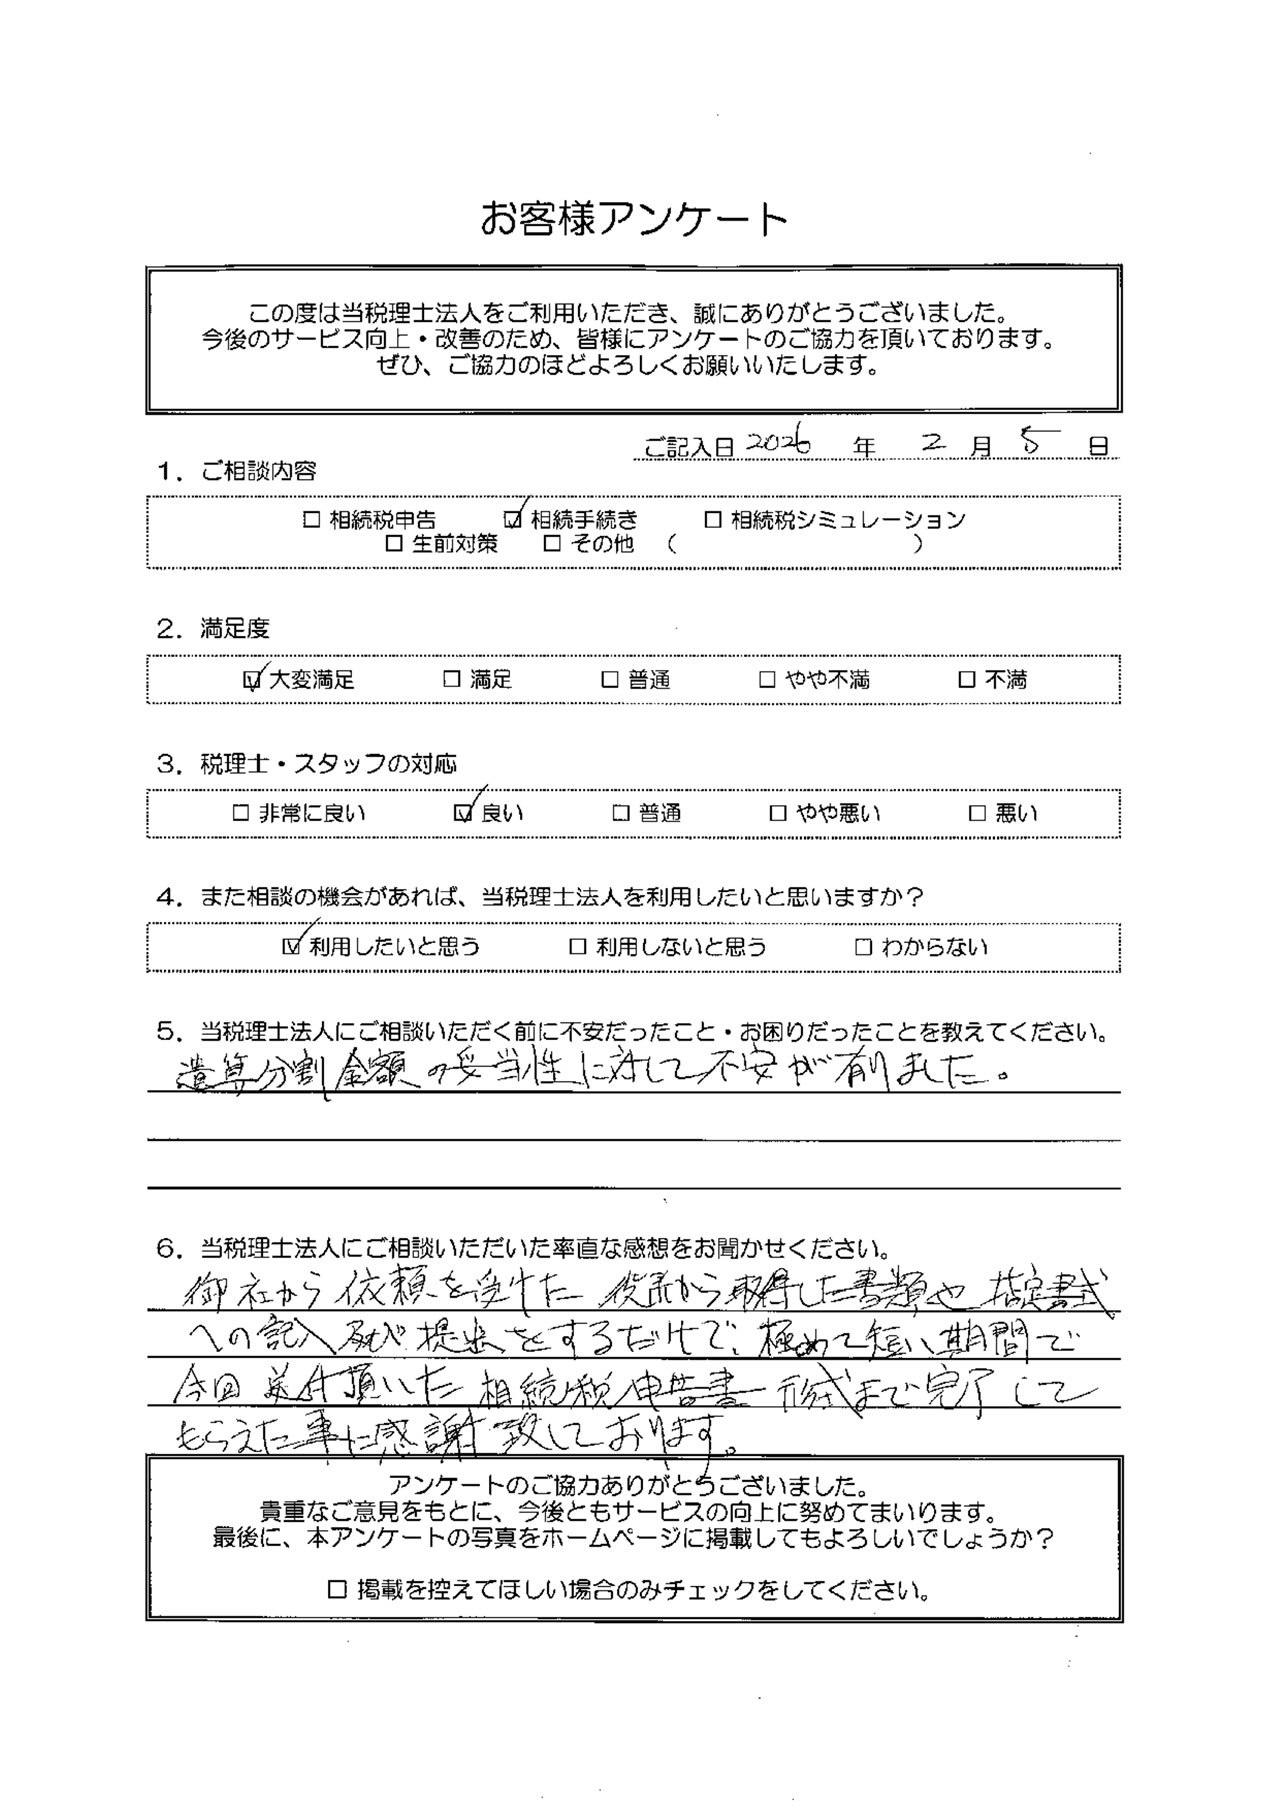 お客様アンケート
この度は当税理士法人をご利用いただき、誠にありがとうございました。
今後のサービス向上・改善のため、皆様にアンケートのご協力を頂いております。
ぜひ、ご協力のほどよろしくお願いいたします。
ご記入日 2026 年 2 月 5 日
1．ご相談内容
□ 相続税申告 ☑ 相続手続き □ 相続税シミュレーション
□ 生前対策 □ その他 （ ）
2．満足度
☑ 大変満足 □ 満足 □ 普通 □ やや不満 □ 不満
3．税理士・スタッフの対応
□ 非常に良い ☑ 良い □ 普通 □ やや悪い □ 悪い
4．また相談の機会があれば、当税理士法人を利用したいと思いますか？
☑ 利用したいと思う □ 利用しないと思う □ わからない
5．当税理士法人にご相談いただく前に不安だったこと・お困りだったことを教えてください。
分割金額の妥当性に対して不安が有りました。
6．当税理士法人にご相談いただいた率直な感想をお聞かせください。
御社から依頼を受けた 役所から取得した書類や 指定書式
への記入及び提出をするだけで、極めて短い期間で
今回送付頂いた相続税申告書形式まで完了して
もらえた事に感謝致しております。
アンケートのご協力ありがとうございました。
貴重なご意見をもとに、今後ともサービスの向上に努めてまいります。
最後に、本アンケートの写真をホームページに掲載してもよろしいでしょうか？
□ 掲載を控えてほしい場合のみチェックをしてください。